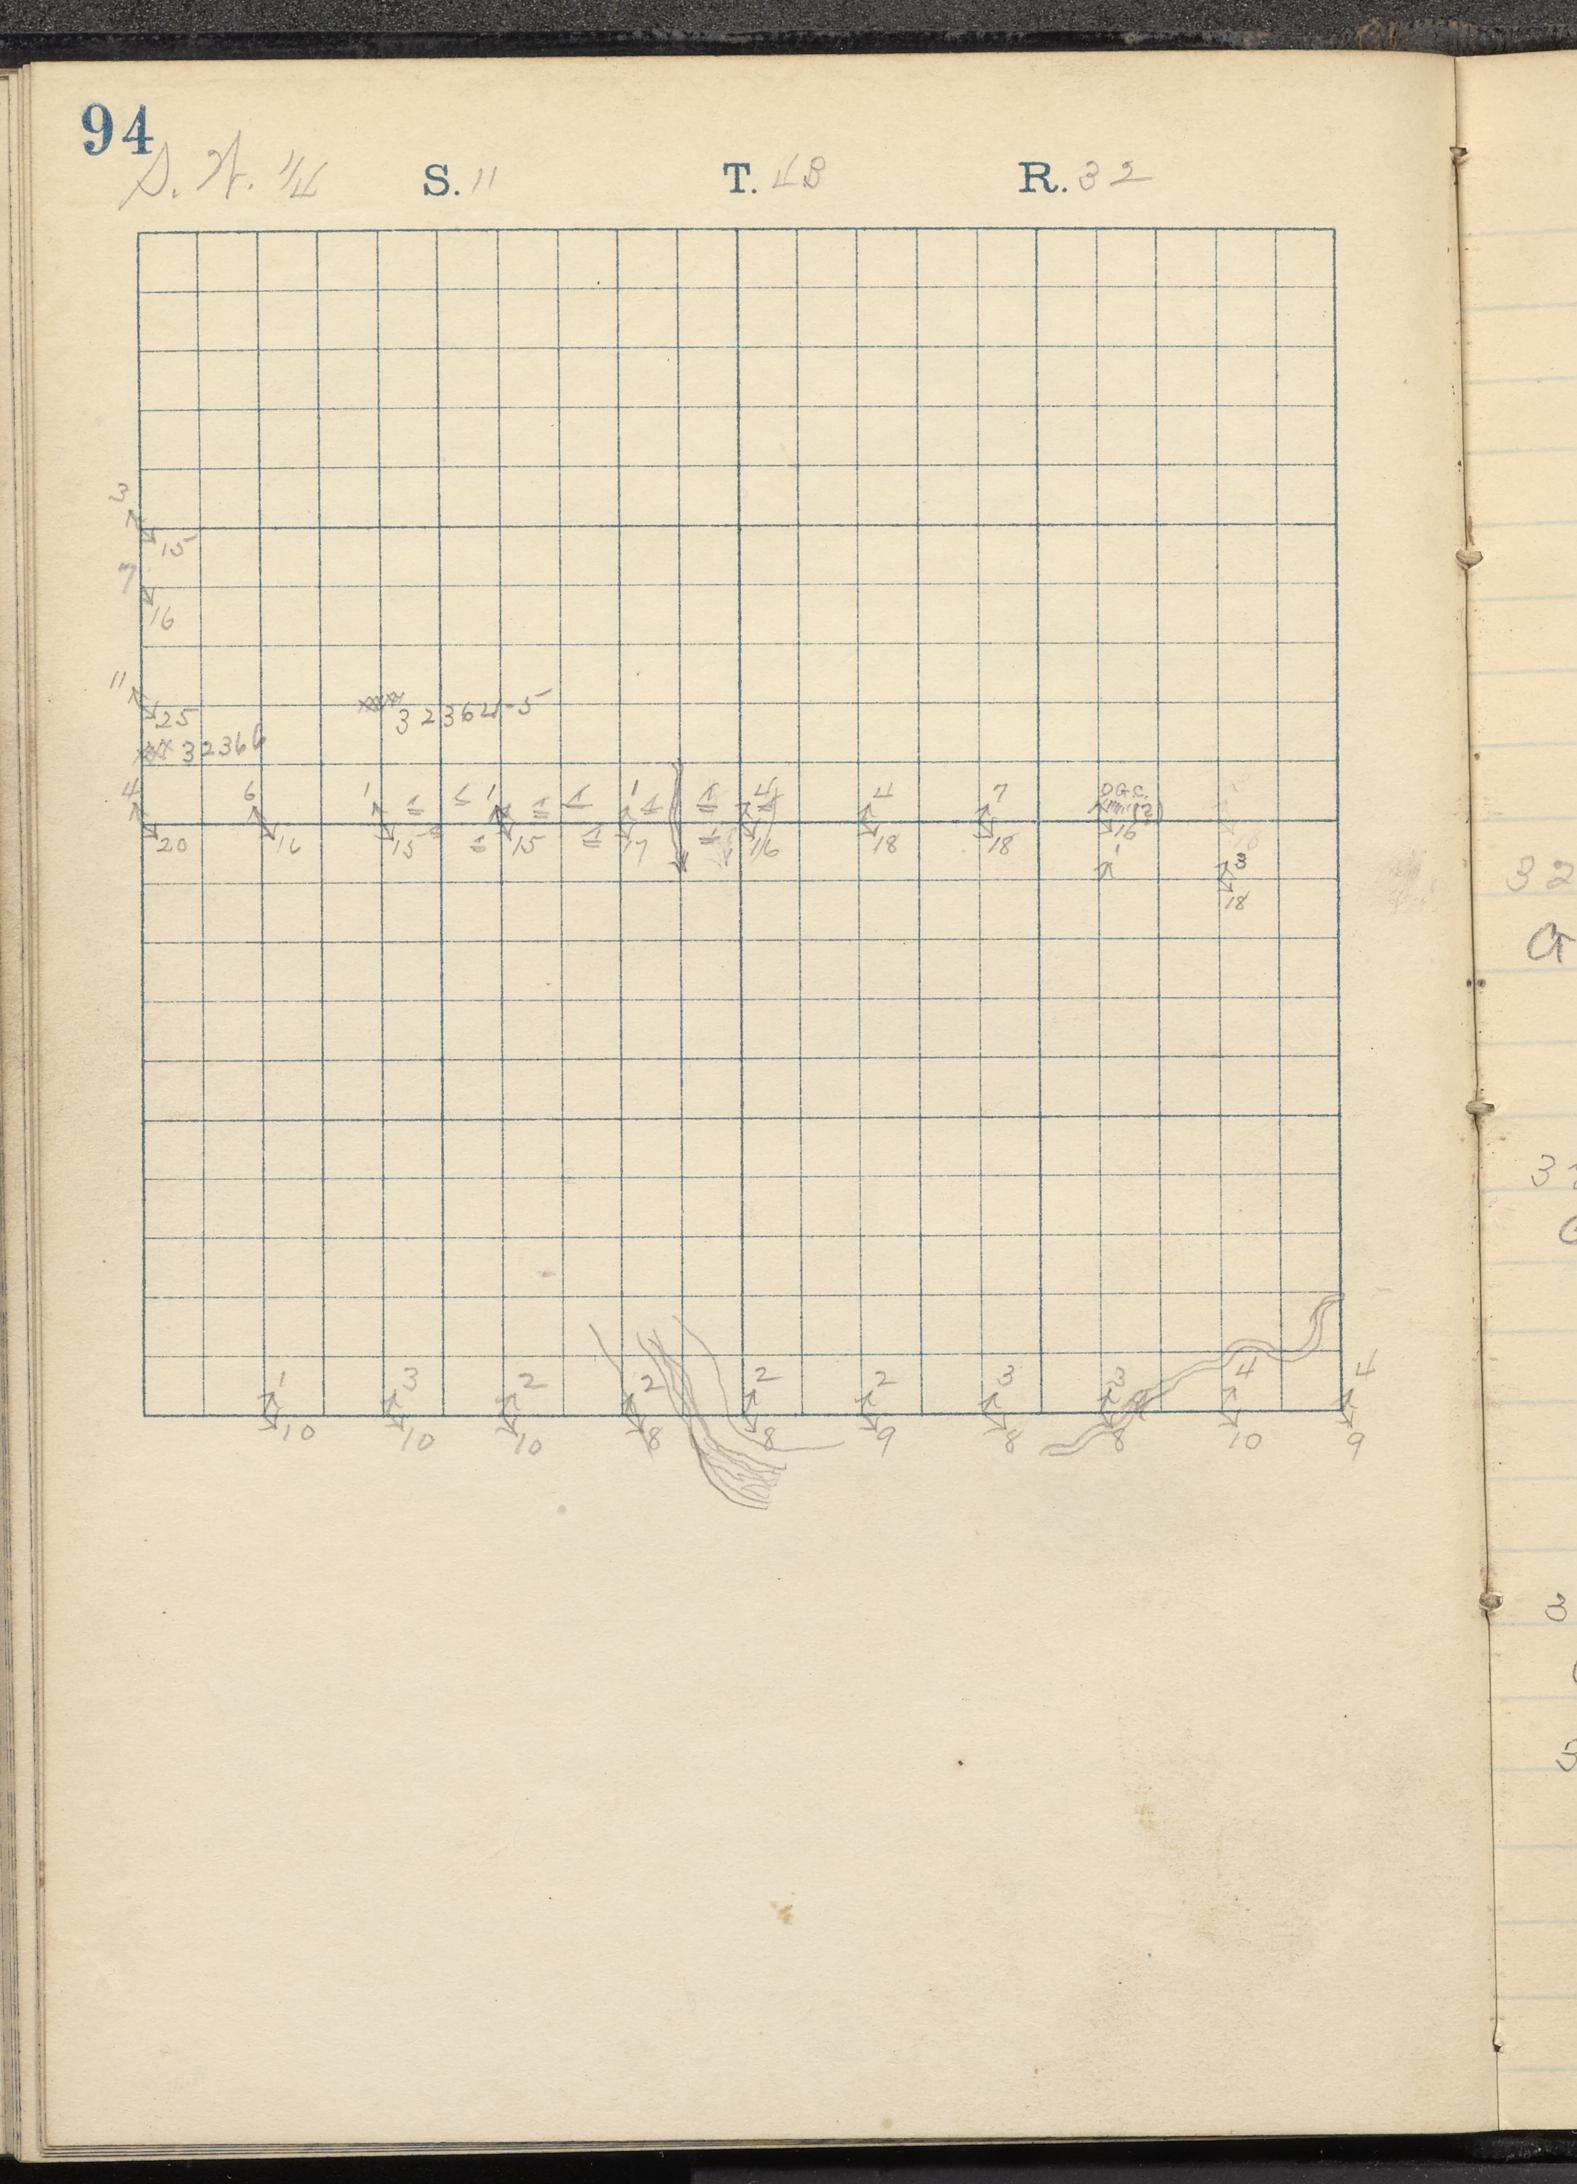 94
S. W. 1/4 S. 11 T. 48 R. 32
3
15
7
16
11
25
32364-5
32366
4 6 1 1 1 4 4 7 O.G.S.
20 16 15 15 17 16 18 18 16
1 3
18
1 3 2 2 2 2 3 3 4 4
10 10 10 8 8 9 8 8 10 9
32
3
3